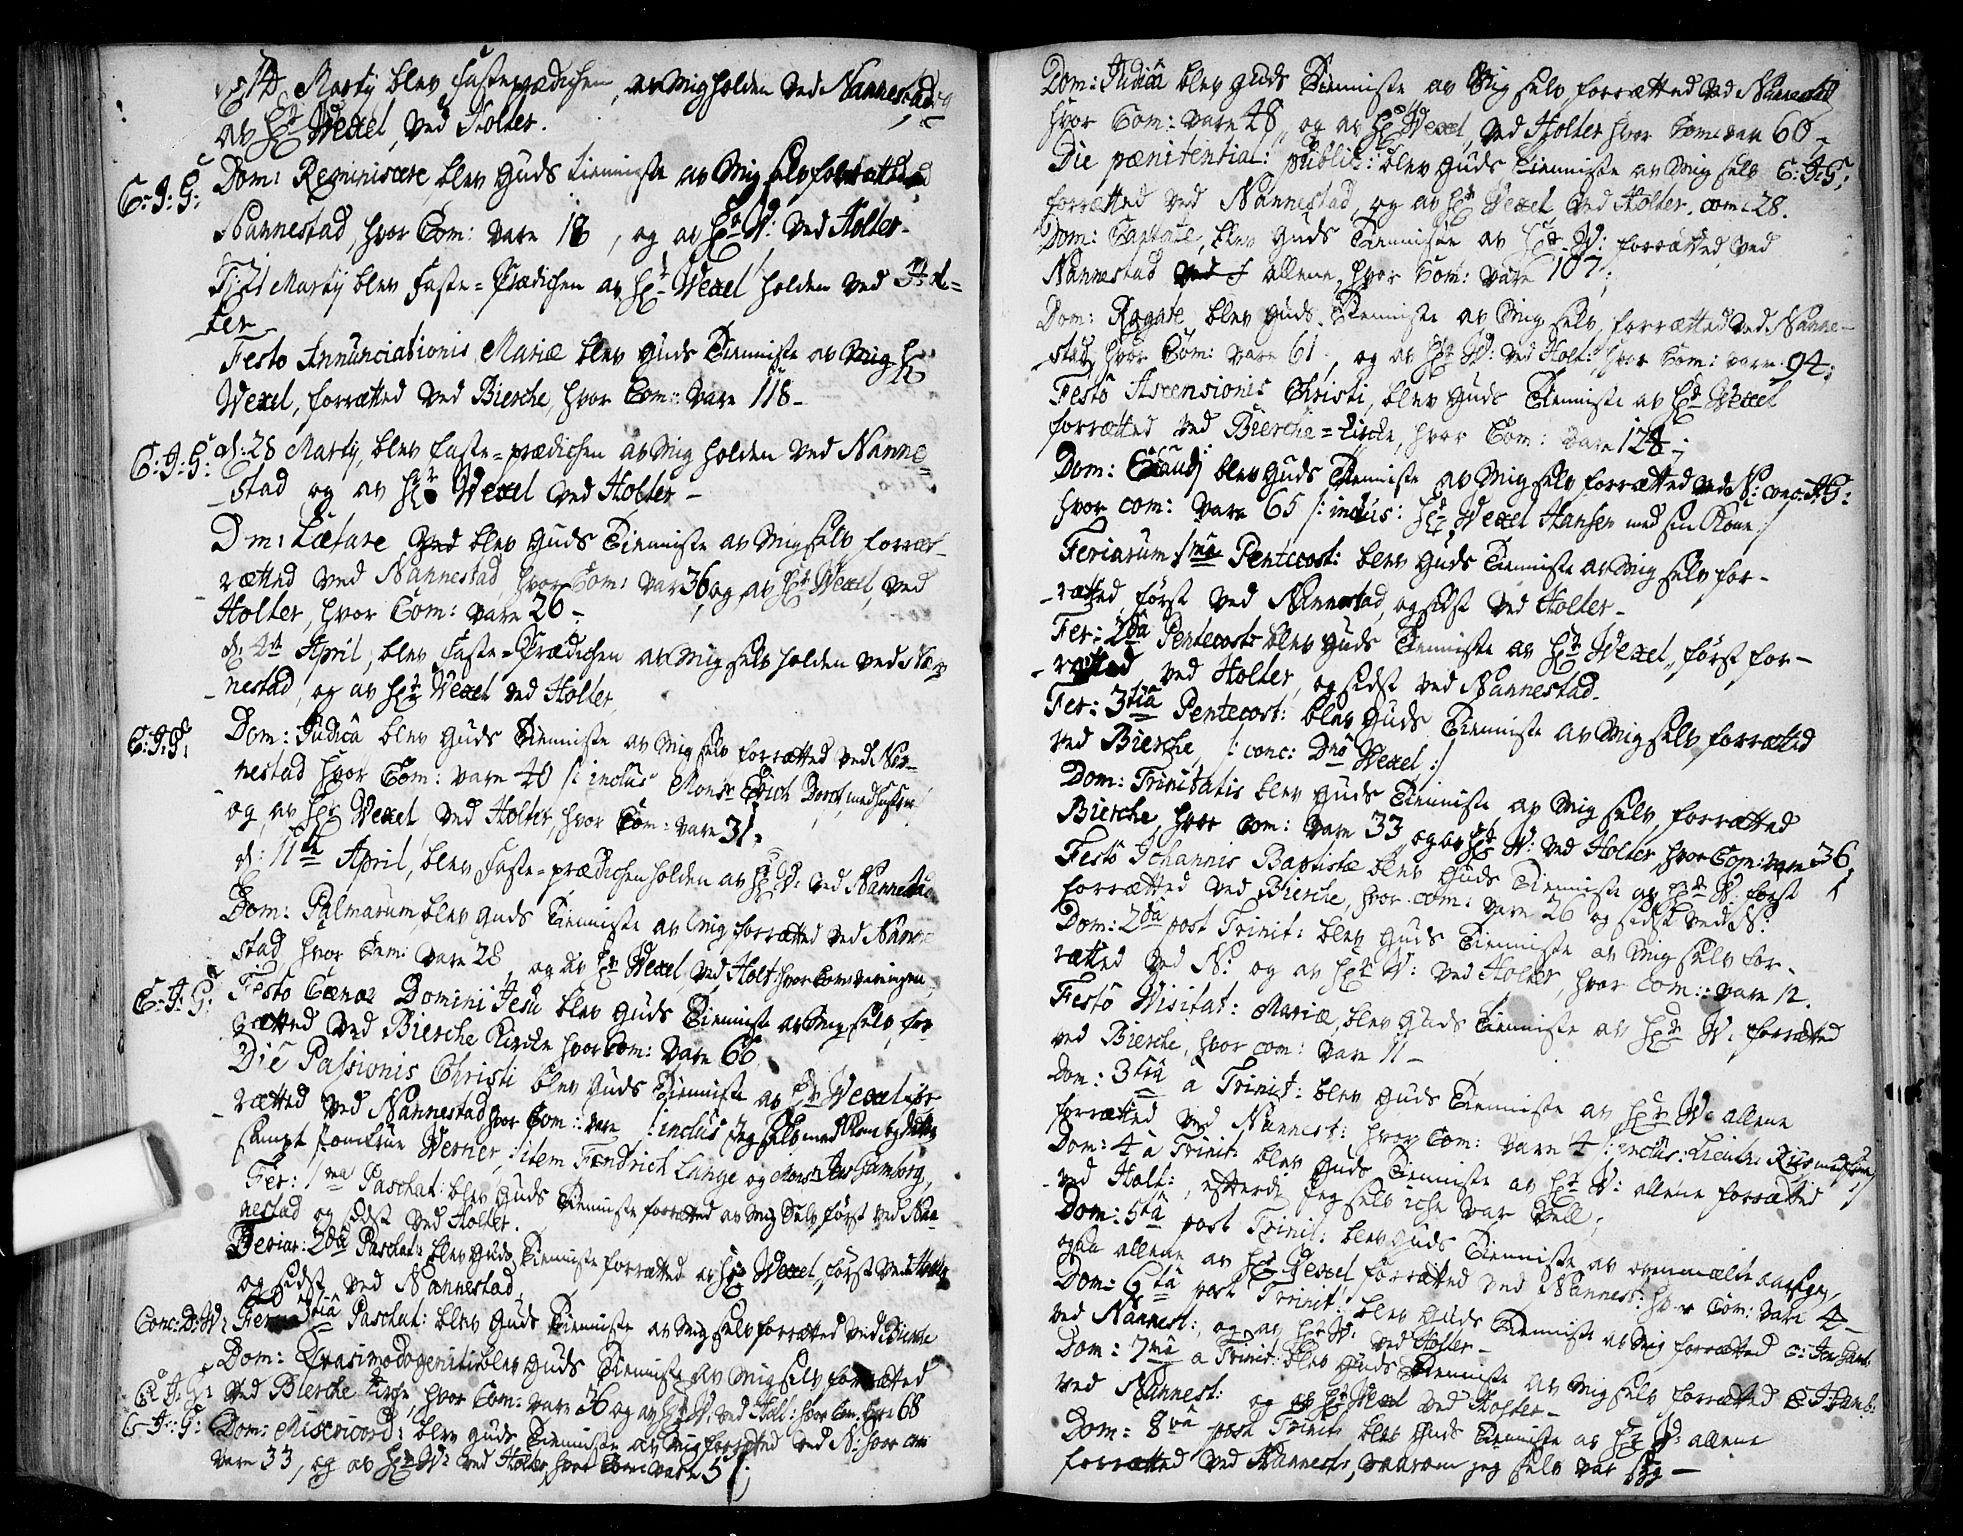 d. 14 Martij blev Fasteprædichen, av Mig holden ved Nannestad, og
av Hr Wexel, ved Holter.
C: J: G: Dom: Reminiscere, blev Guds tienniste av Mig selv forrætted ved
Nannestad, hvor Com: vare 18, og av Hr W: ved Holter-
d. 21 Martij blev Faste=Prædichen av Hr Wexel holden ved Hol=
ter
Festo Annunciationis Mariæ blev Guds Tienniste av Hr
Wexel, forrætted ved Bierche, hvor Com: vare 118-
C: J: G: d: 28 Martij, blev Faste=prædichen av Mig holden ved Nanne=
stad og av Hr Wexel ved Holter-
Dom: Lætare blev Guds Tienniste av Mig selv forræt-
rætted ved Nannestad, hvor Com: var 36, og av Hr Wexel, ved
Holter, hvor Com: vare 26-
d. 4de April, blev Faste=Prædichen av Mig selv holden ved Nan
nestad, og av Hr Wexel ved Holter
C: J: G: Dom: Judica blev Guds Tienniste av Mig selv forrætted ved Nan-
nestad hvor Com: vare 40 /: inclus Monsr Erich med Hustru
og av Hr Wexel, ved Holter, hvor Com: vare 31.
d: 11te April, blev Faste=prædichen holden av Hr W: ved Nannestad
Dom: Palmarum, blev Guds Tienniste av Mig forrætted ved Nanne
stad, hvor Com: vare 28, og av Hr Wexel, ved Holt: hvor Com: var ingen,
C: J: G: Festo Cænæ Domini Jesu blev Guds Tienniste av Mig selv, for
rætted ved Bierche Kirche hvor Com: vare 66
Die Passionis Christi blev Guds Tienniste av Hr Wexel for
rætted ved Nannestad hvor Com: vare /: inclus Jeg selv med Kone
sampt Jomfrue Werner, item Fendrich Lange og Monsr Gamborg,
Fer: 1ma Paschat: blev Guds Tienniste forrætted av Mig Selv først ved Nan
nestad og sidst ved Holter.
Feriar: 2da Paschat: blev Guds Tienniste forrætted av Hr Wexel, først ved Holter
og sidst ved Nannestad.
Conc: D: W: Fer: 3tia Paschat: blev Guds Tienniste av Mig selv forrætted ved Bierche
Dom: Qvasimodogeniti blev Guds Tienniste av Mig selv forrætted
C: J: G: ved Bierche Kirche, hvor Com: vare 36 og av Hr W: ved Holt: hvor Com: vare 68
C: J: G: Dom: Misericord: blev Guds Tienniste av Mig forrætted ved N: hvor com
vare 33, og av Hr W: ved Holter, hvor Com: vare 51;
Dom: Judica blev Guds Tienniste av Mig selv forrætted ved Nannestad
hvor Com: vare 48, og av Hr Wexel, ved Holter hvor Com: vare 60;
Die pænitential: public: blev Guds Tienniste av Mig selv C: J: G:
forrætted ved Nannestad, og av Hr Wexel, ved Holter. com: 28.
Dom: Cantate, blev Guds Tienniste av Hr W: forrætted ved
Nannestad allene, hvor Com: vare 107;
Dom: Rogate blev Guds Tienniste av Mig selv forrætted ved Nanne-
stad, hvor Com: vare 61, og av Hr W: ved Holt: hvor Com: vare 94;
Festo Ascensionis Christi, blev Guds Tienniste av Hr Wexel
forrætted ved Bierche=Kirche, hvor Com: vare 128;
Dom: Exaudj blev Guds Tienniste av Mig selv forrætted ved N: conc: J: G:
hvor com: vare 65 /: inclus: Hr Wexel Hansen med sin Kone:/
Feriarum 1ma Pentecost: blev Guds Tienniste av Mig selv for-
rætted, først ved Nannestad, og sidst ved Holter-
Fer: 2da Pentecost: blev Guds Tienniste av Hr Wexel, først for-
rætted ved Holter, og sidst ved Nannestad.
Fer: 3tiâ Pentecost: blev Guds Tienniste av Mig selv forrætted
ved Bierche, /: conc: Dno Wexel:/
Dom: Trinitatis blev Guds Tienniste av Mig selv forrætted
Bierche, hvor Com: vare 33 og av Hr W: ved Holter hvor Com: vare 36,
Festo Johannis Baptistæ blev Guds Tienniste av Hr W: først
forrætted ved Bierche, hvor com: vare 26 og sidst ved N:
Dom: 2da post Trinit: blev Guds Tienniste av Mig selv for-
rætted ved N: og av Hr W: ved Holter, hvor com: vare 12.
Festo Visitat: Mariæ, blev Guds Tienniste av Hr W: forrætted
ved Bierche, hvor com: vare 11-
Dom: 3tiâ à Trinit: blev Guds Tienniste av Hr W: allene
forrætted ved Nannest: hvor Com: vare 4 /: inclus: Lieutn: Riis
Dom: 4 à Trinit: blev Guds Tienniste av Hr W: allene forrætted
ved Holt:, efterdj Jeg selv iche var vell;
Dom: 5tâ post Trinit: blev Guds Tienniste av ovenmælte aarsag,
ogsaa allene av Hr Wexel forrætted ved Nannest: hvor Com: vare 4-
Dom: 6tâ post Trinit: blev Guds Tienniste av Mig forrætted
ved Nannest:, og av Hr W: ved Holter-
Dom: 7mâ a Trinit: blev Guds Tienniste av Mig selv forrætted
ved Nannest: og av Hr Wexel ved Holter-
Dom: 8vâ post Trinit: blev Guds Tienniste av Hr W: allene
forrætted ved Nannest:, jeg selv var syg-